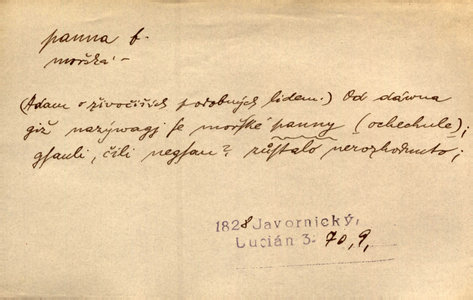 panna f.
mořská -
(Adam o živočiších podobných lidem.) Od dáwna
giž nazýwagj se mořské panny (ochechule);
gsauli, čili negsau? zůstalo nerozhodnuto;
1828 Javornický,
Lucián 3- 70, 9,